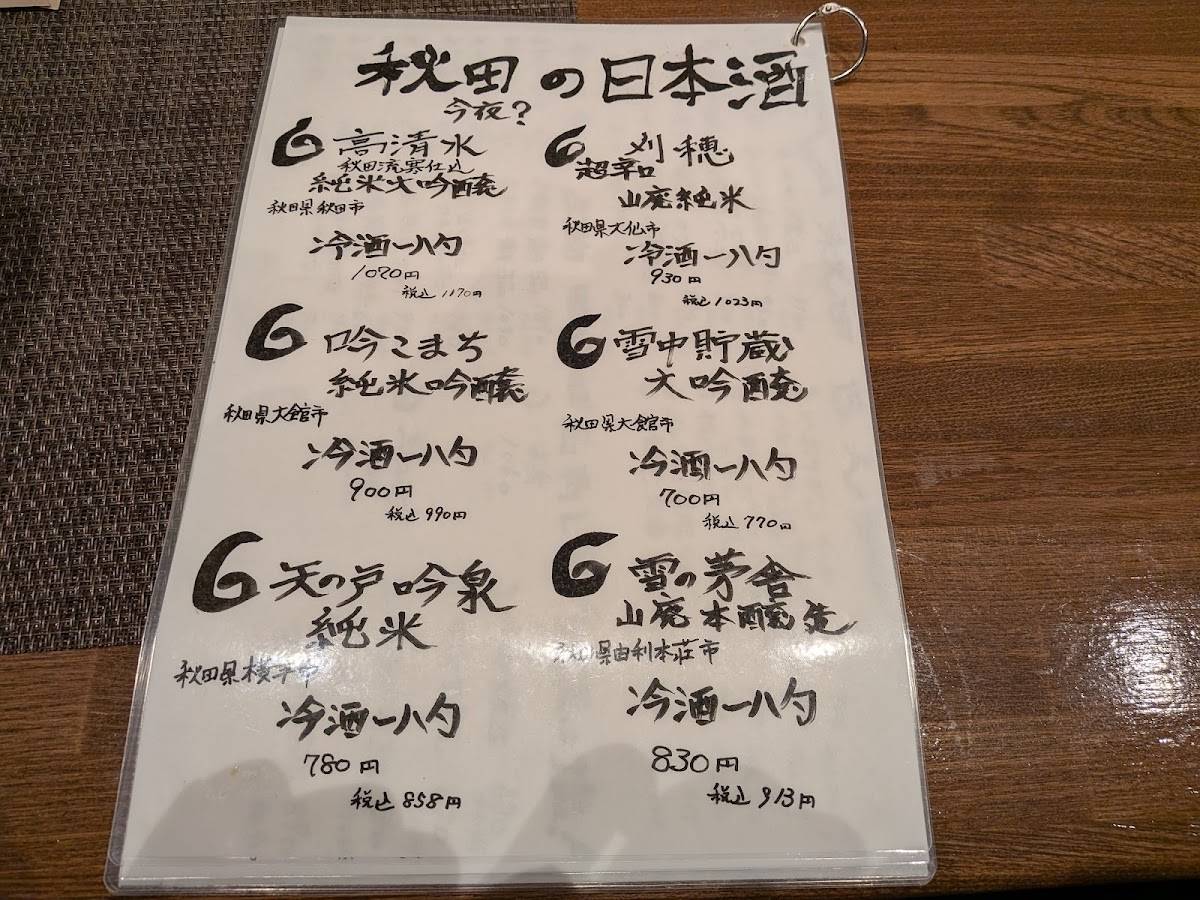 秋田の日本酒
今夜?
高清水
秋田流寒仕込
純米大吟醸
秋田県秋田市
冷酒一八勺
1070円
税込1170円
刈穂
超辛口
山廃純米
秋田県大仙市
冷酒一八勺
930円
税込1023円
吟こまち
純米吟醸
秋田県大館市
冷酒一八勺
900円
税込990円
雪中貯蔵
大吟醸
秋田県大館市
冷酒一八勺
700円
税込770円
天の戸吟泉
純米
秋田県横手市
冷酒一八勺
780円
税込858円
雪の茅舎
山廃本醸造
県由利本荘市
冷酒一八勺
830円
税込913円